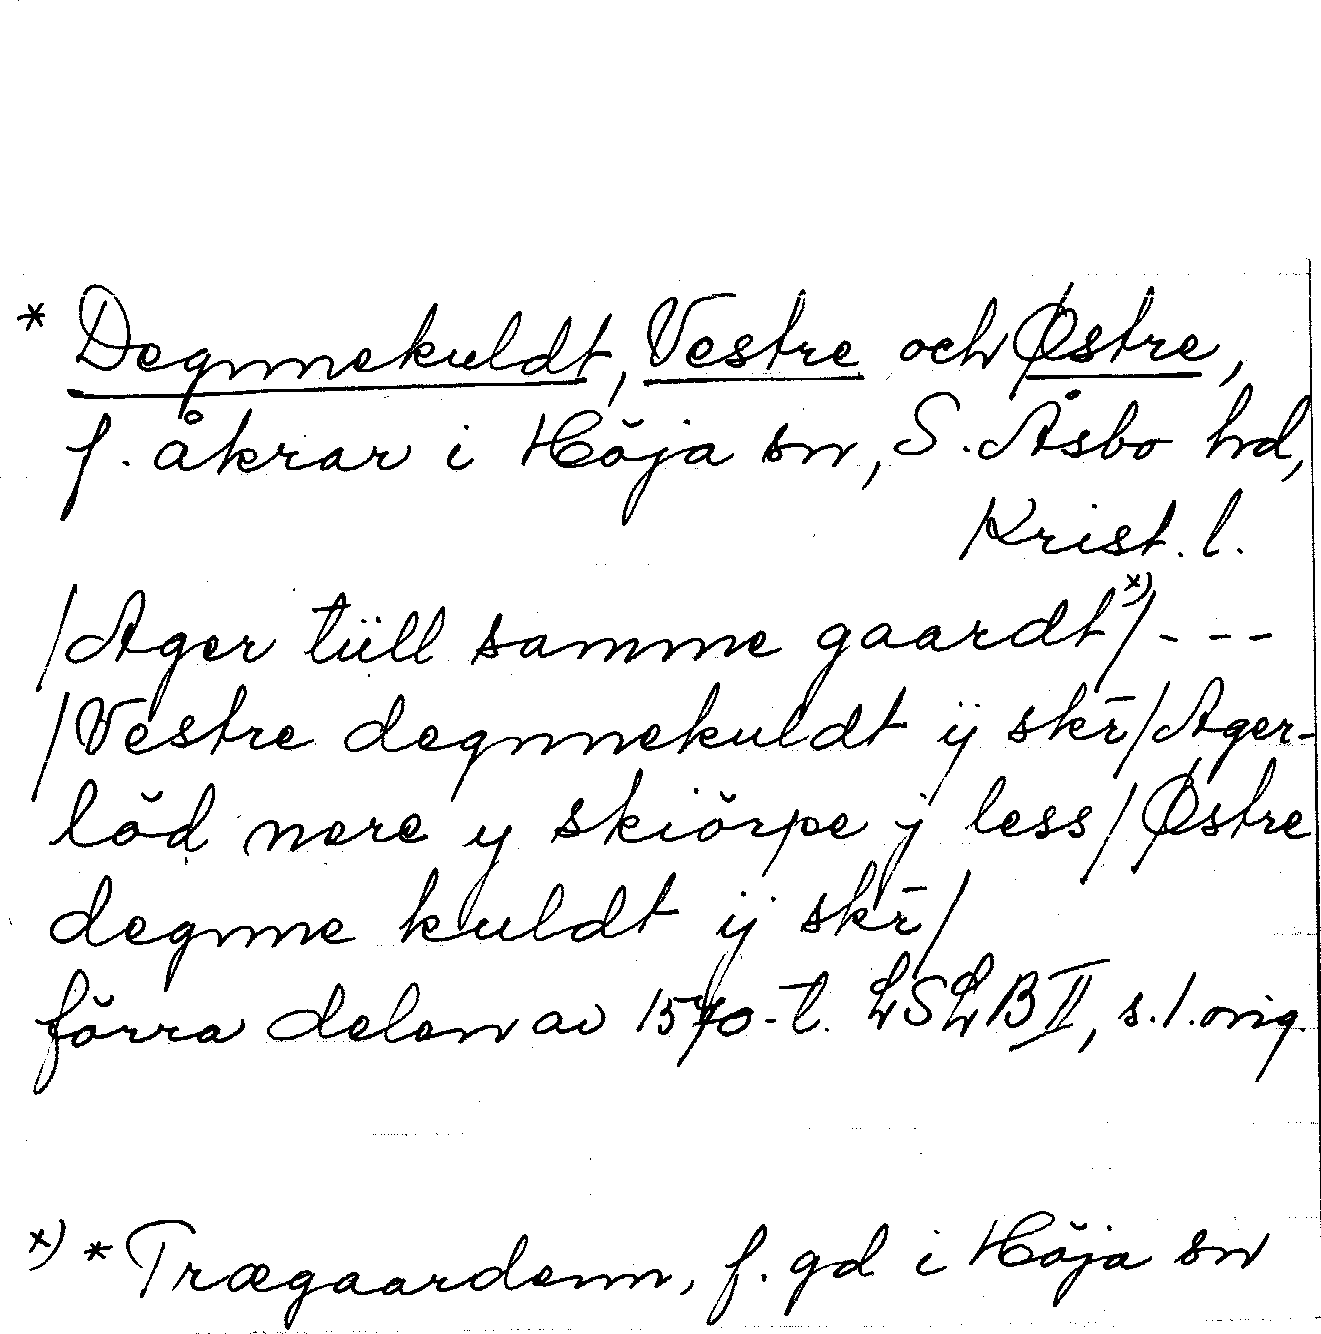 * Degnnekuldt, Vestre och Østre,
f. åkrar i Höja sn, S. Åsbo hd,
Krist. l.
/Ager tüll samme gaardt x)/ - - -
/Vestre degnnekuldt ij skr̄/Ager-
löd nere y skiörpe j less/Østre
degnne kuldt ij skr̄/
förra delen av 1570-t. LSLB II, s. 1. orig
x) * Trægaardenn, f. gd i Höja sn